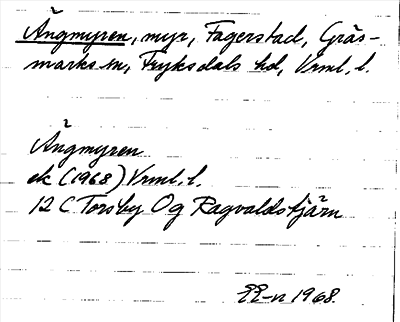 Ängmyren, myr, Fagerstad, Gräs-
marks sn, Fryksdals hd, Vrml. l.
Ängmyren
ek (1968) Vrml. l.
12 C Torsby Og Ragvaldstjärn
1968.